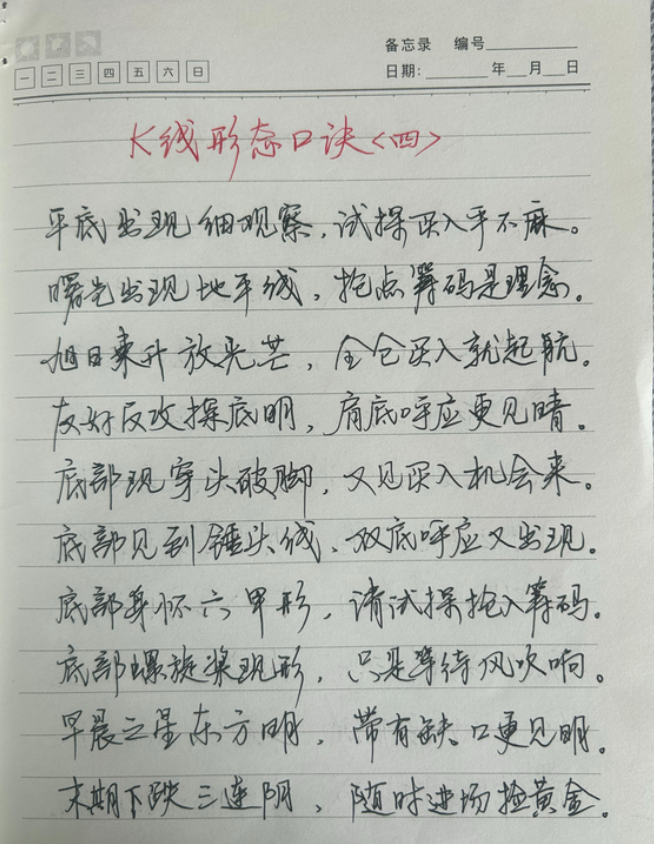 备忘录 编号
一 二 三 四 五 六 日
日期: 年 月 日
K线形态口诀<四>
平底出现细观察，试探买入手不麻。
曙光出现地平线，抢点筹码是理念。
旭日东升放光芒，全仓买入就起航。
友好反攻探底明，肩底呼应更见晴。
底部现穿头破脚，又见买入机会来。
底部见到锤头线、双底呼应又出现。
底部身怀六甲形，请试探抢入筹码。
底部螺旋桨现形，只是等待风吹响。
早晨之星东方明，带有缺口更见明。
末期下跌三连阴，随时进场捡黄金。